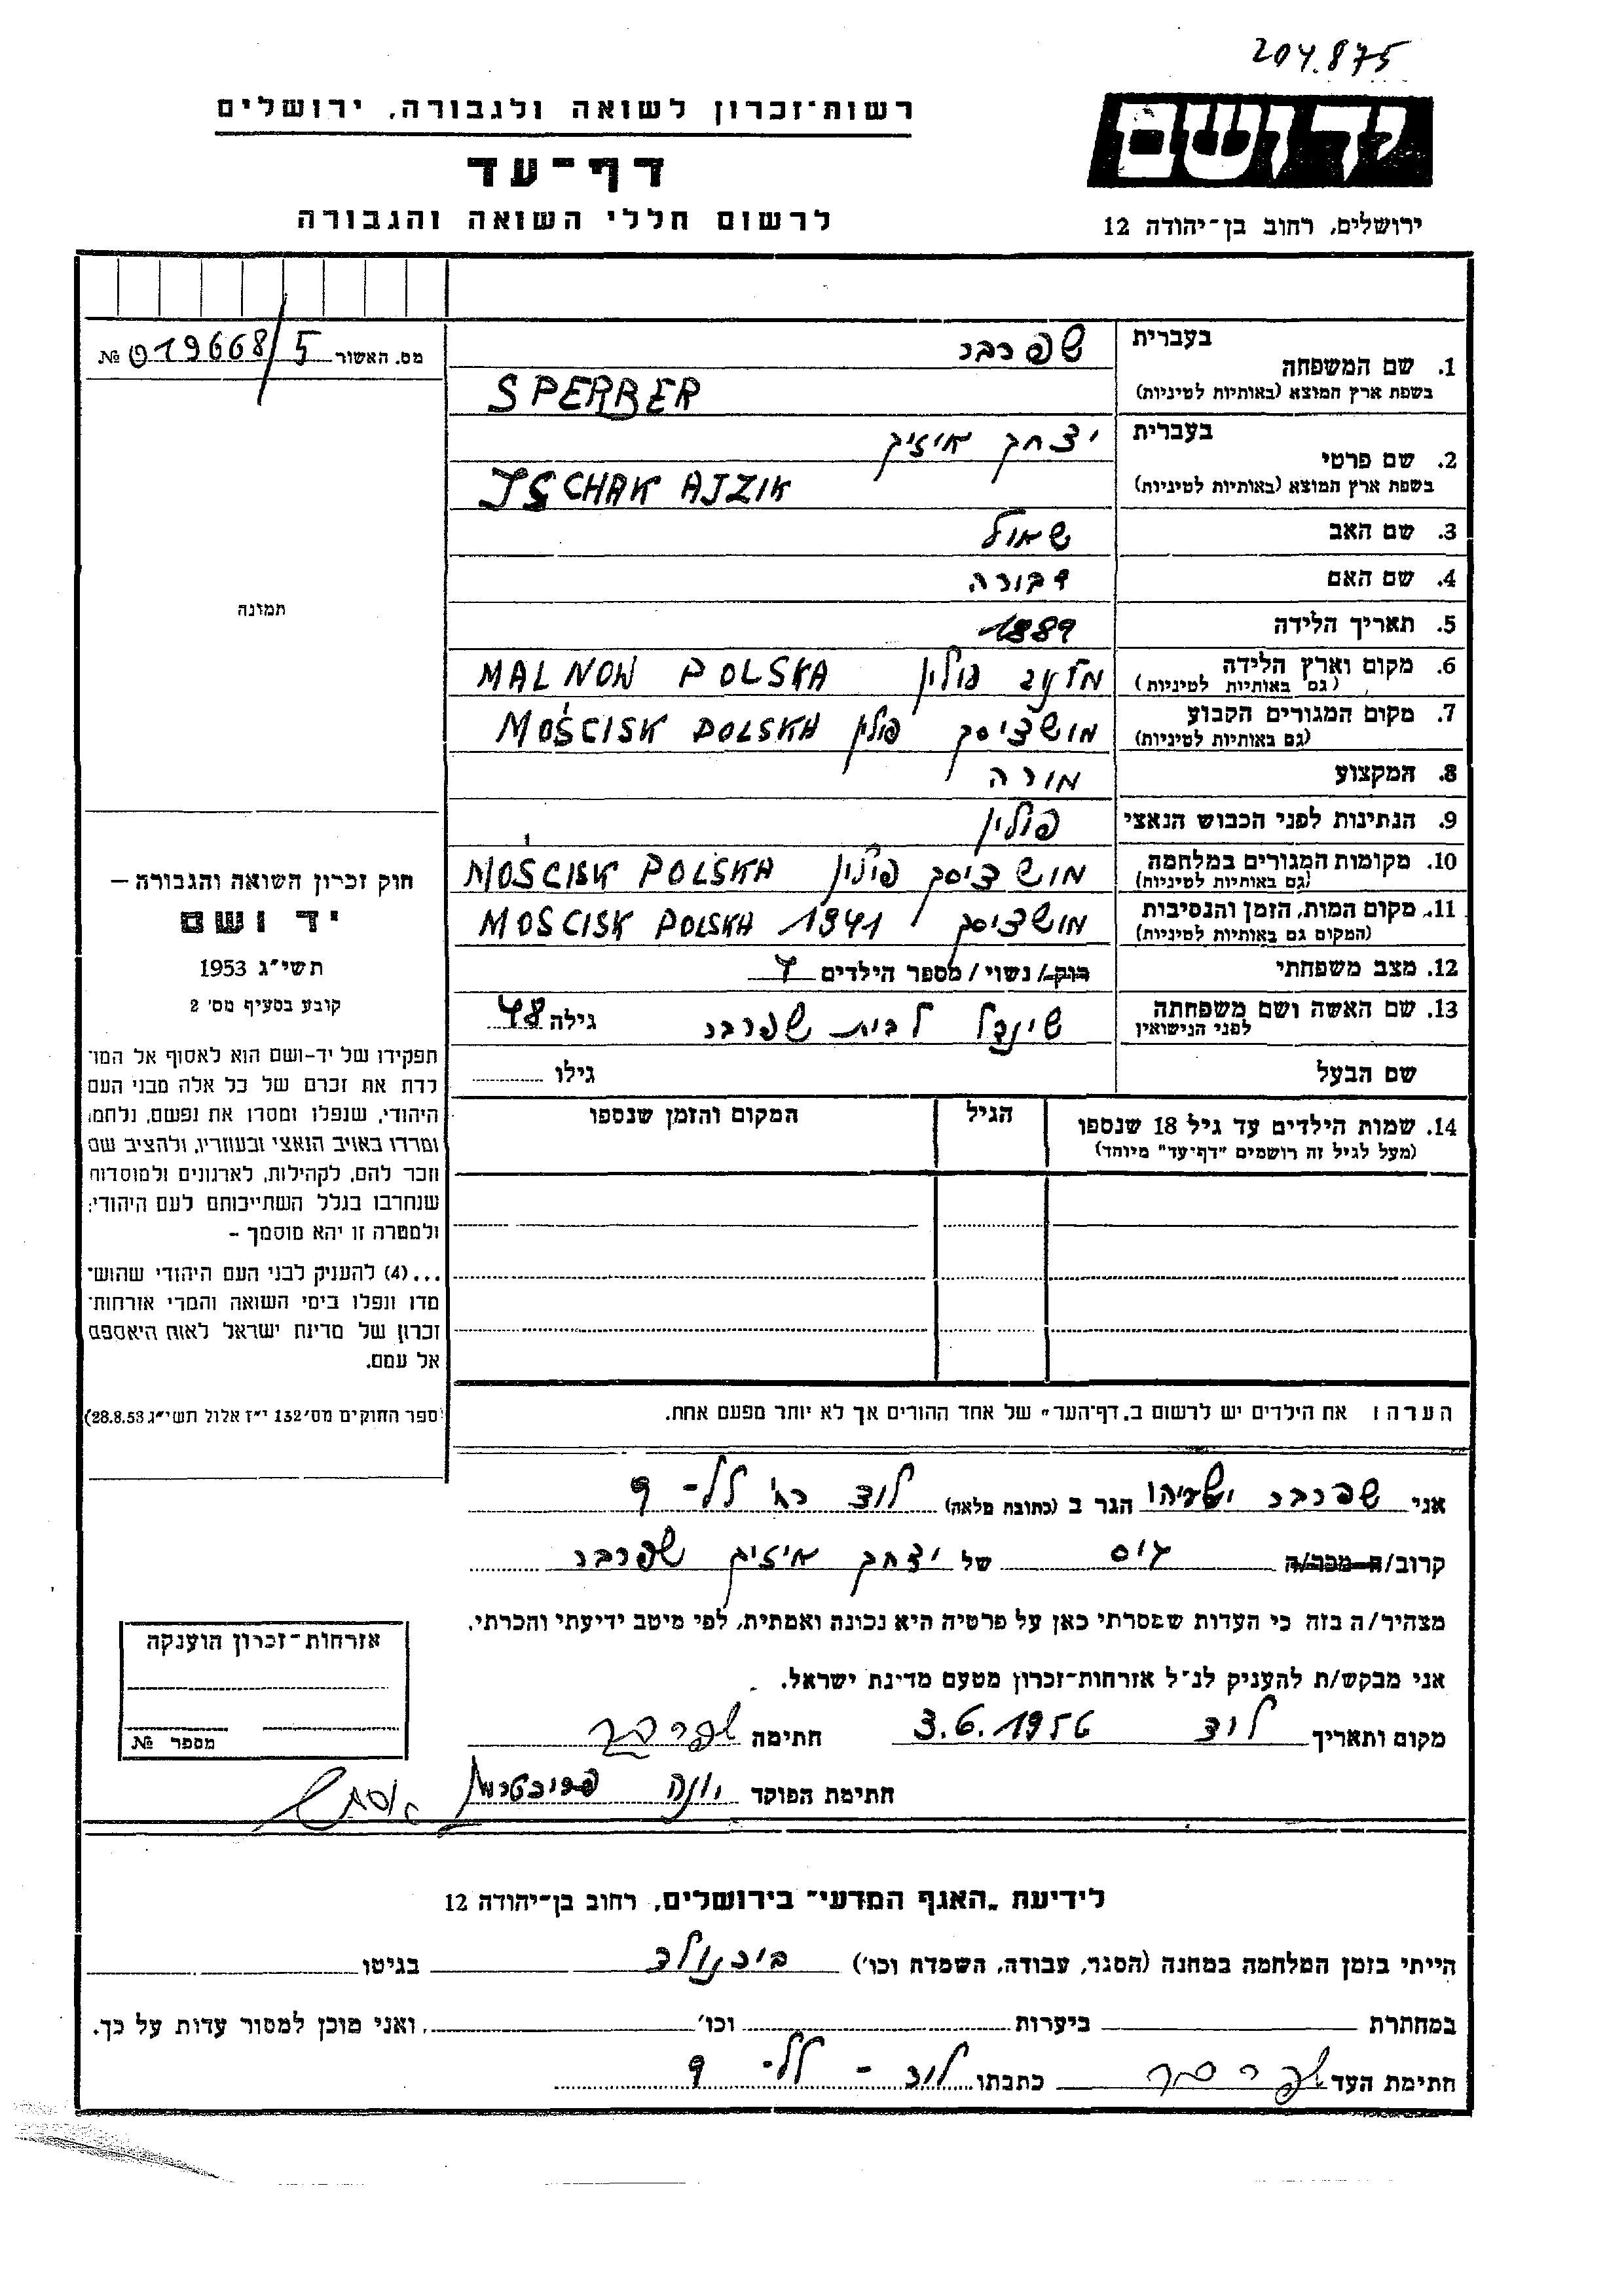 204.875
יד ושם
ירושלים, רחוב בן-יהודה 12
רשות-זכרון לשואה ולגבורה, ירושלים
דף-עד
לרשום חללי השואה והגבורה
מס. האשור 019668/5 №
תמונה
1. שם המשפחה בעברית שפרבר
בשפת ארץ המוצא (באותיות לטיניות) SPERBER
2. שם פרטי בעברית יצחק אייזיק
בשפת ארץ המוצא (באותיות לטיניות) JSCHAK AJZIK
3. שם האב שאול
4. שם האם דבורה
5. תאריך הלידה 1889
6. מקום וארץ הלידה (גם באותיות לטיניות) פולין MALNOW POLSKA
7. מקום המגורים הקבוע (גם באותיות לטיניות) מושציסק פולין MOŚCISK POLSKA
8. המקצוע מורה
9. הנתינות לפני הכבוש הנאצי פולין
10. מקומות המגורים במלחמה (גם באותיות לטיניות) מושציסק פולין MOŚCISK POLSKA
11. מקום המות, הזמן והנסיבות (המקום גם באותיות לטיניות) מושציסק 1941 MOSCISK POLSKA
12. מצב משפחתי רוק/ נשוי / מספר הילדים 4
13. שם האשה ושם משפחתה לפני הנישואין שינדל לבית שפרבר גילה 48
שם הבעל גילו
14. שמות הילדים עד גיל 18 שנספו הגיל המקום והזמן שנספו
(מעל לגיל זה רושמים "דף-עד" מיוחד)
הערה: את הילדים יש לרשום ב"דף-העד" של אחד ההורים אך לא יותר מפעם אחת.
חוק זכרון השואה והגבורה –
יד ושם
תשי"ג 1953
קובע בסעיף מס' 2
תפקידו של יד-ושם הוא לאסוף אל המו-
לדת את זכרם של כל אלה מבני העם
היהודי, שנפלו ומסרו את נפשם, נלחמו
ומרדו באויב הנאצי ובעוזריו, ולהציב שם
וזכר להם, לקהילות, לארגונים ולמוסדות
שנחרבו בגלל השתייכותם לעם היהודי;
ולמטרה זו יהא מוסמך –
...(4) להעניק לבני העם היהודי שהוש-
מדו ונפלו בימי השואה והמרי אזרחות-
זכרון של מדינת ישראל לאות היאספם
אל עמם.
(ספר החוקים מס' 132 י"ז אלול תשי"ג 28.8.53)
אני שפרבר ישעיהו הגר ב (כתובת מלאה) לוד רח' לל- 9
קרוב/ה מכר/ה גיס של יצחק אייזיק שפרבר
מצהיר/ה בזה כי העדות שמסרתי כאן על פרטיה היא נכונה ואמתית, לפי מיטב ידיעתי והכרתי.
אני מבקש/ת להעניק לנ"ל אזרחות-זכרון מטעם מדינת ישראל.
מקום ותאריך לוד 3.6.1956 חתימה שפרבר
חתימת הפוקד יונה
אזרחות-זכרון הוענקה
מספר №
לידיעת "האגף המדעי" בירושלים, רחוב בן-יהודה 12
הייתי בזמן המלחמה במחנה (הסגר, עבודה, השמדת וכו') בוכנולד בגיטו
במחתרת ביערות וכו' ואני מוכן למסור עדות על כך.
חתימת העד שפרבר כתבתו לוד - לל- 9